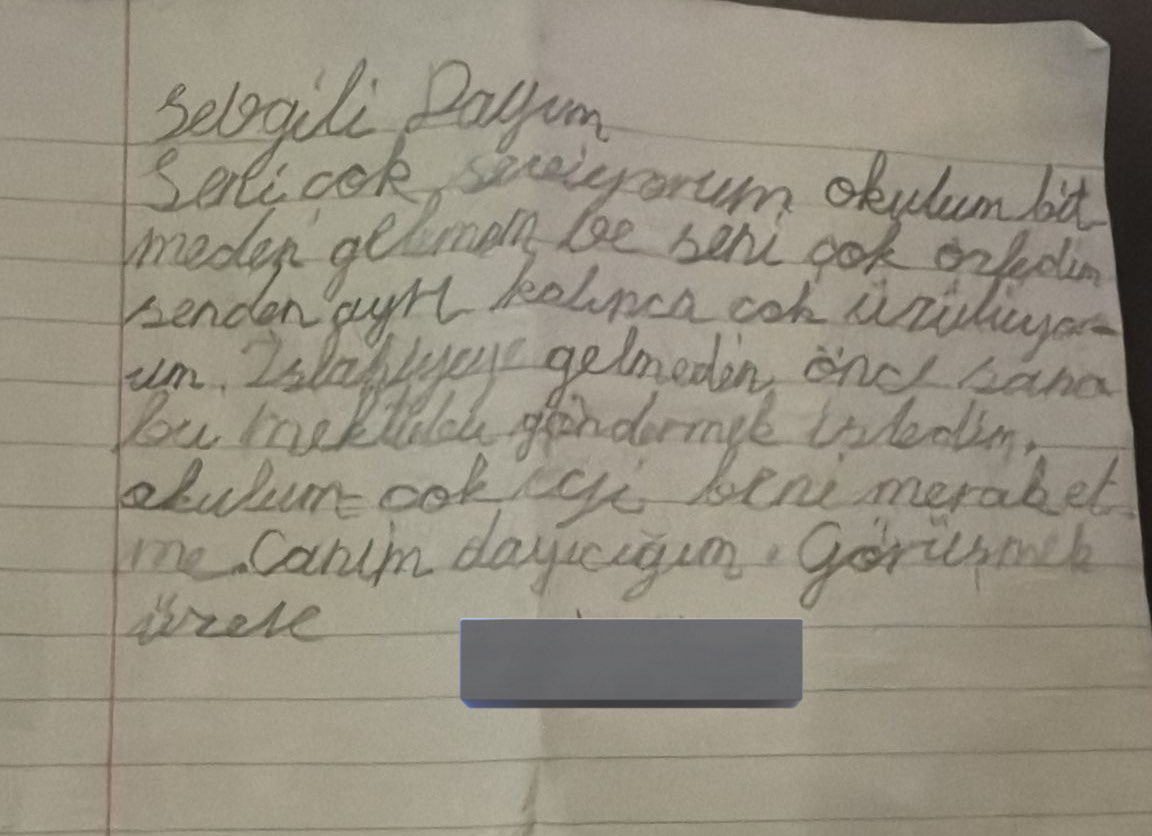 Sevgili Dayım
Seni çok seviyorum okulum bit-
meden gelemem ve seni çok özledim
senden ayrı kalınca çok üzülüyor-
um. Islahiyeye gelmeden önce sana
bu mektubu göndermek istedim.
okulum çok iyi beni merak et-
me. Canım dayıcığım. Görüşmek
üzere